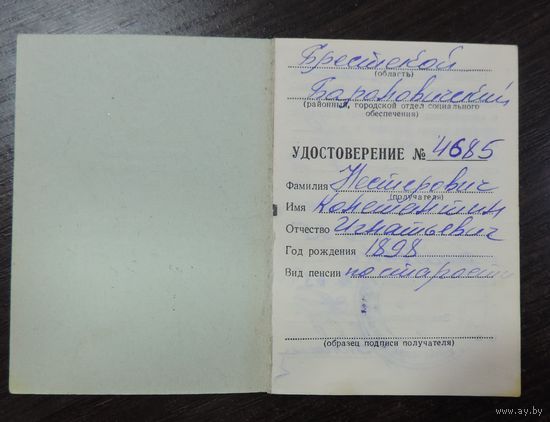 Брестской
(область)
Барановичский
(районный, городской отдел социального
обеспечения)
УДОСТОВЕРЕНИЕ № 4685
Фамилия Нестерович
(получателя)
Имя Константин
Отчество Игнатьевич
Год рождения 1898
Вид пенсии по старости
(образец подписи получателя)
www.ay.by